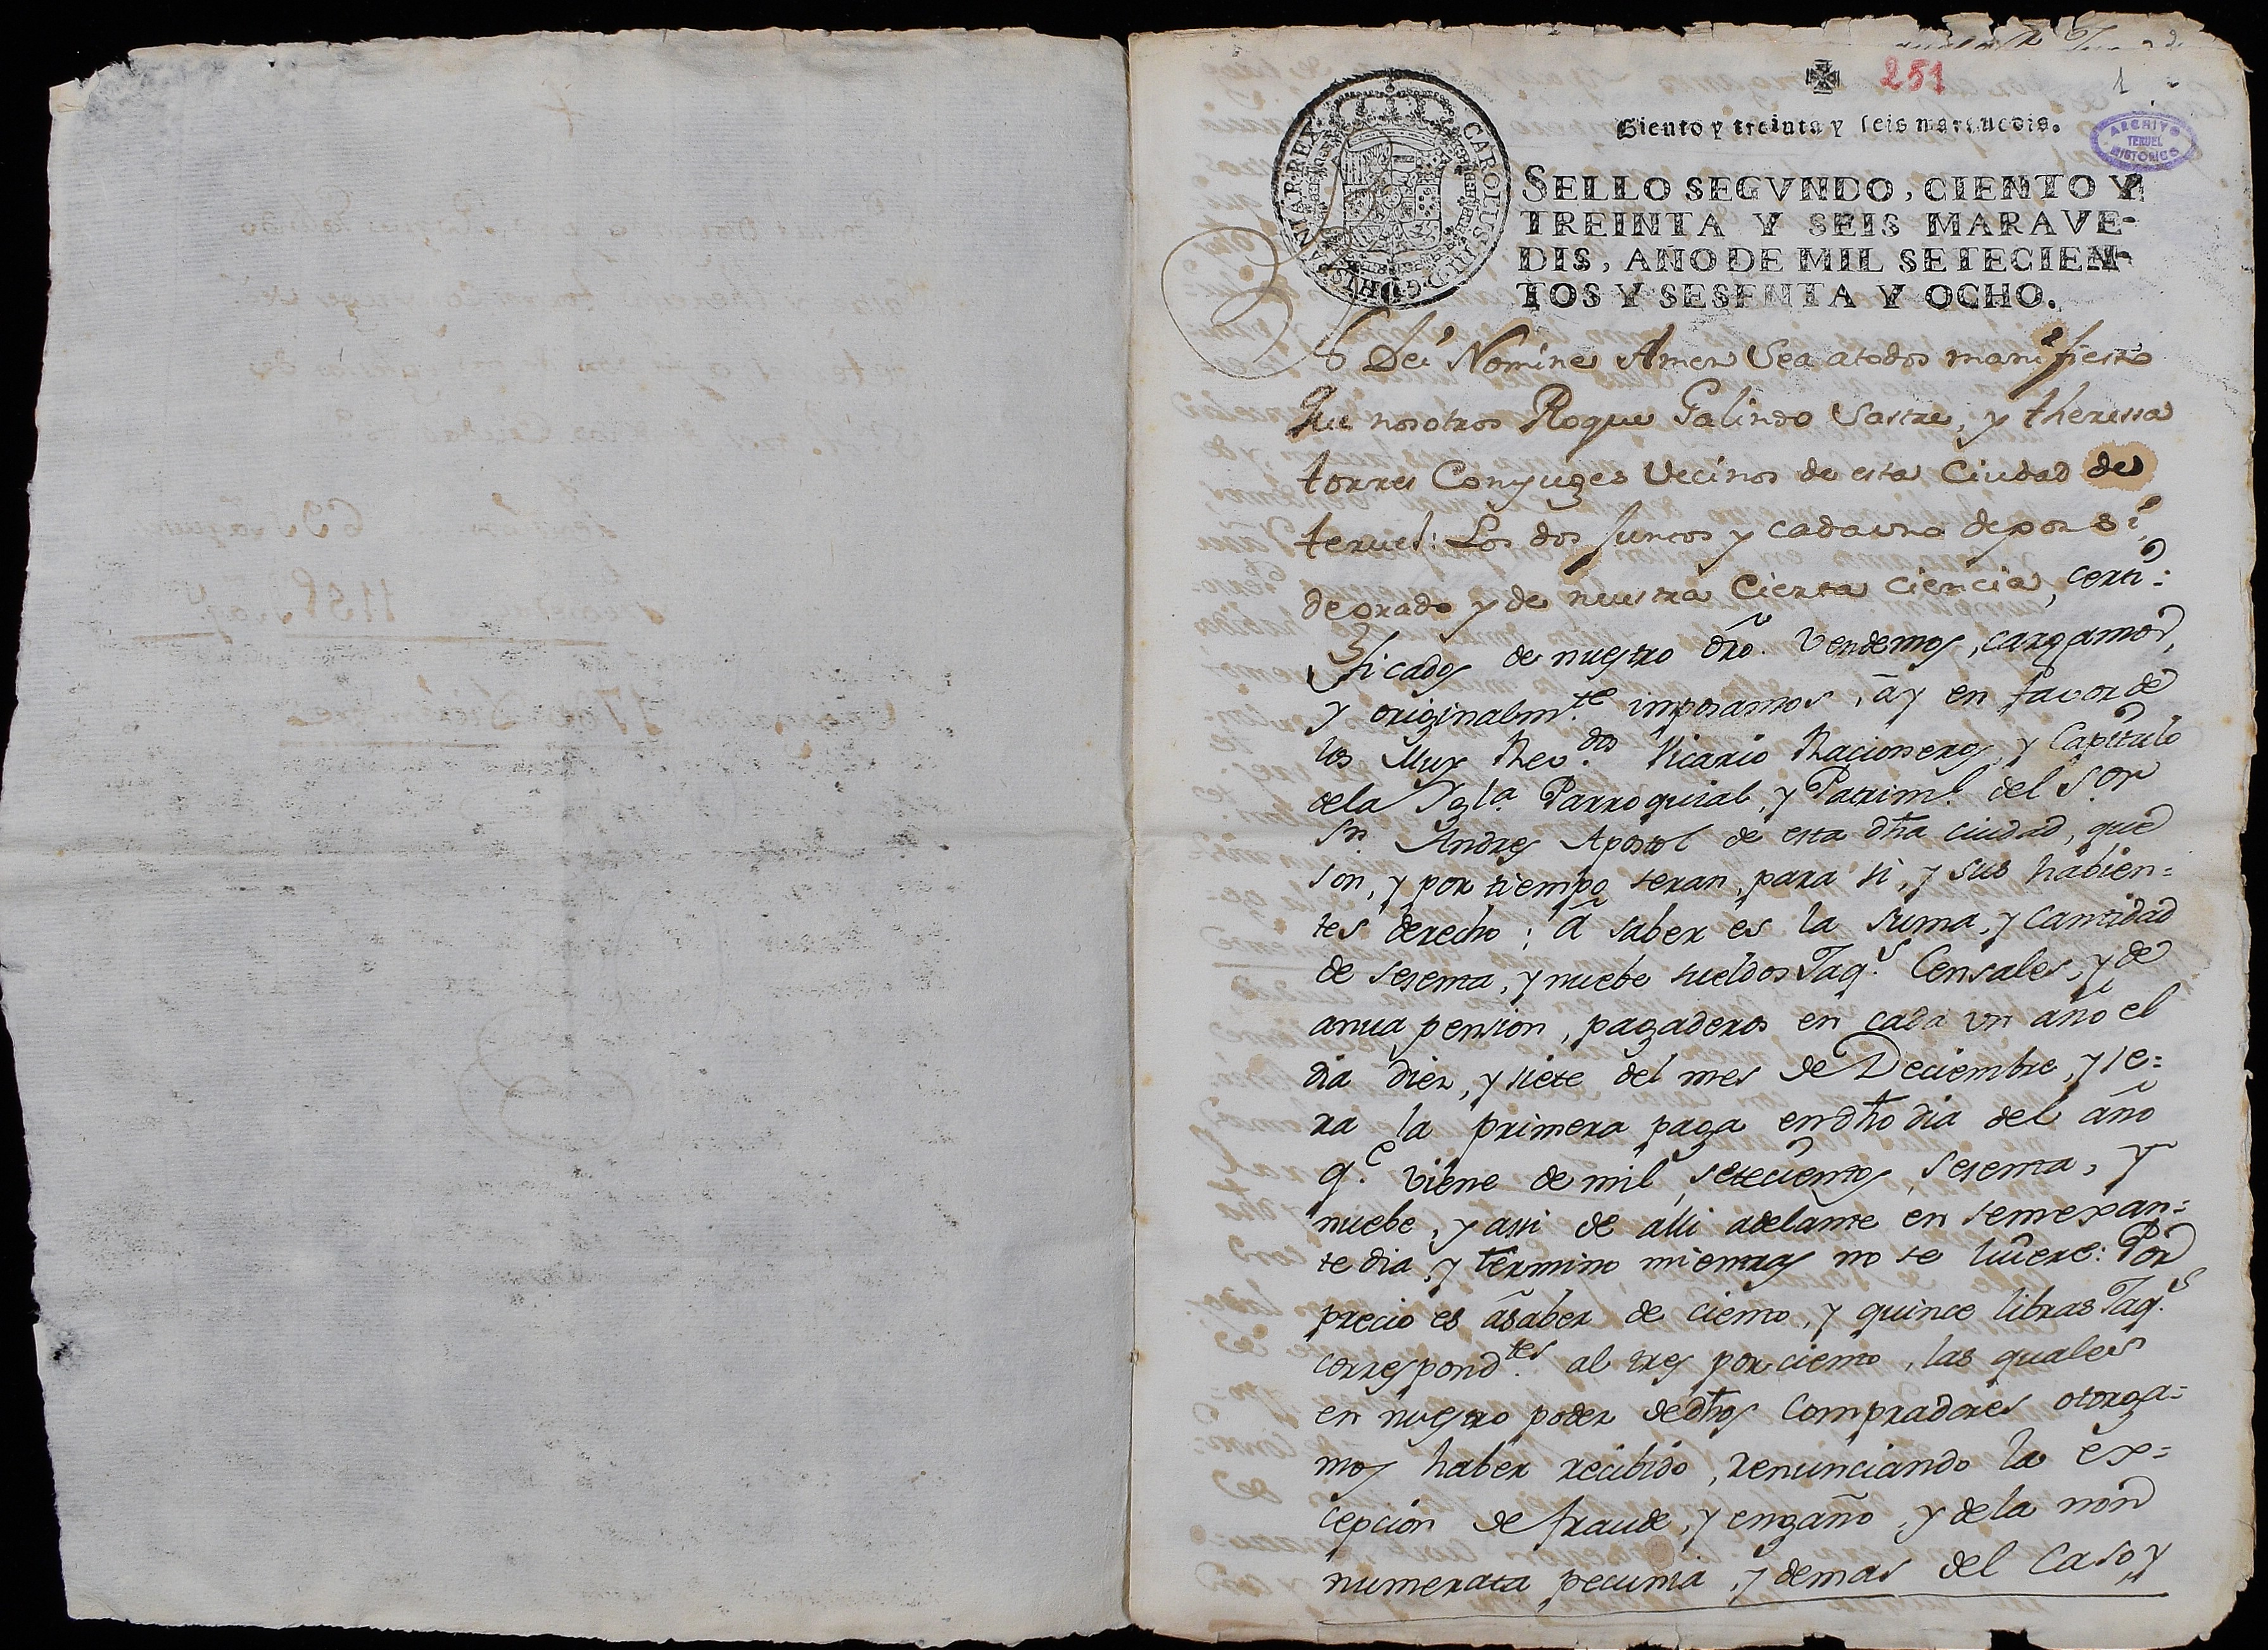 251
1
Ciento y treinta y seis maravedis.
ARCHIVO
TERUEL
HISTORICO
CAROLUS III D.G. HISPANIAR REX
SELLO SEGVNDO, CIENTO Y
TREINTA Y SEIS MARAVE-
DIS, AÑO DE MIL SETECIEN-
TOS Y SESENTA Y OCHO.
Dei Nomine Amen Sea atodos manifiesto
Que nosotros Roque Galindo Sastre, y theressa
torres Conyuges Vecinos de esta Ciudad de
teruel: Los dos Juntos y cadauno depor si,
de grado y de nuestra Cierta Ciencia, certi:
ficados de nuestro dro. Vendemos, cargamos,
y originalmte. imposamos, á y en favor de
los Muy Revdos. Vicario Racioneros, y Capitulo
dela Igla. Parroquial, y Patriml. del Sor
Sn. Andres Apostol de esta dha ciudad, que
son, y por tiempo seran, para si, y sus habien=
tes derecho; á saber es la suma, y cantidad
de sesenta, y nuebe sueldos Jaqs. Censales, y de
anua pension, pagaderos en cada un año el
dia diez, y siete del mes de Deciembre, y se=
ra la primera paga en dho dia del año
qe. viene de mil setecientos sesenta, y
nuebe, y assi de alli adelante en semexan=
te dia, y termino mientras no se luiere: Por
precio es ásaber de ciento, y quince libras Jaqs.
correspondtes. al tres por ciento, las quales
en nuestro poder de dhos Compradores otorga=
mos haber recibido, renunciando la ex=
cepcion de fraude, y engaño, y dela non
numerata pecunia, y demas del caso, y